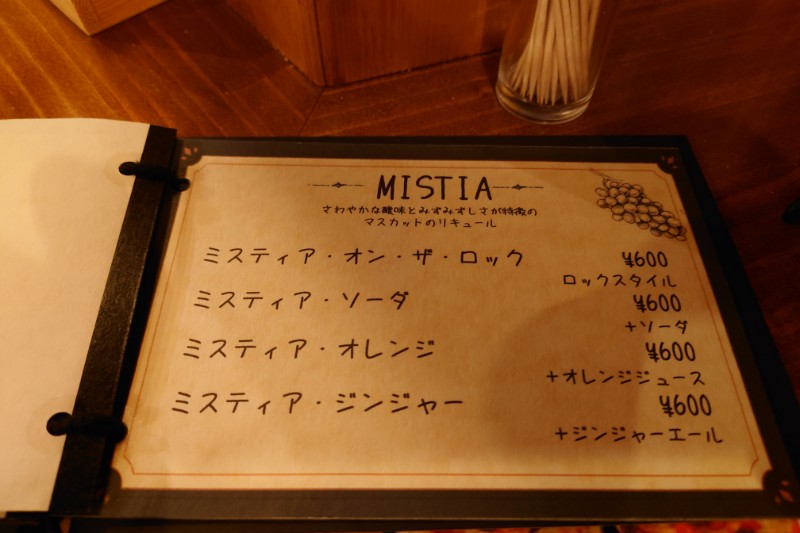 MISTIA
さわやかな酸味とみずみずしさが特徴の
マスカットのリキュール
ミスティア・オン・ザ・ロック ¥600
ロックスタイル
ミスティア・ソーダ ¥600
+ソーダ
ミスティア・オレンジ ¥600
+オレンジジュース
ミスティア・ジンジャー ¥600
+ジンジャーエール